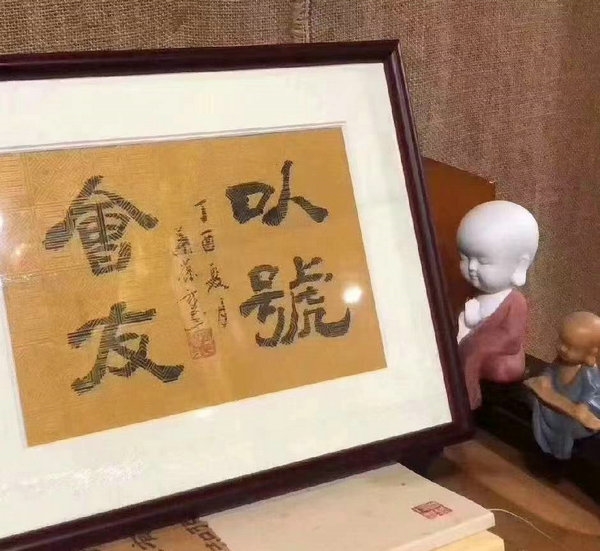 以號
丁酉夏月
會友